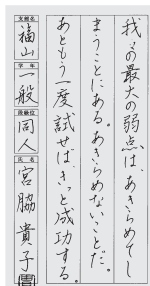 我々の最大の弱点は、あきらめてし
まうことにある。あきらめないことだ。
あともう一度試せばきっと成功する。
支部名 福山
学年 一般
段級位 同人
氏名 宮脇貴子